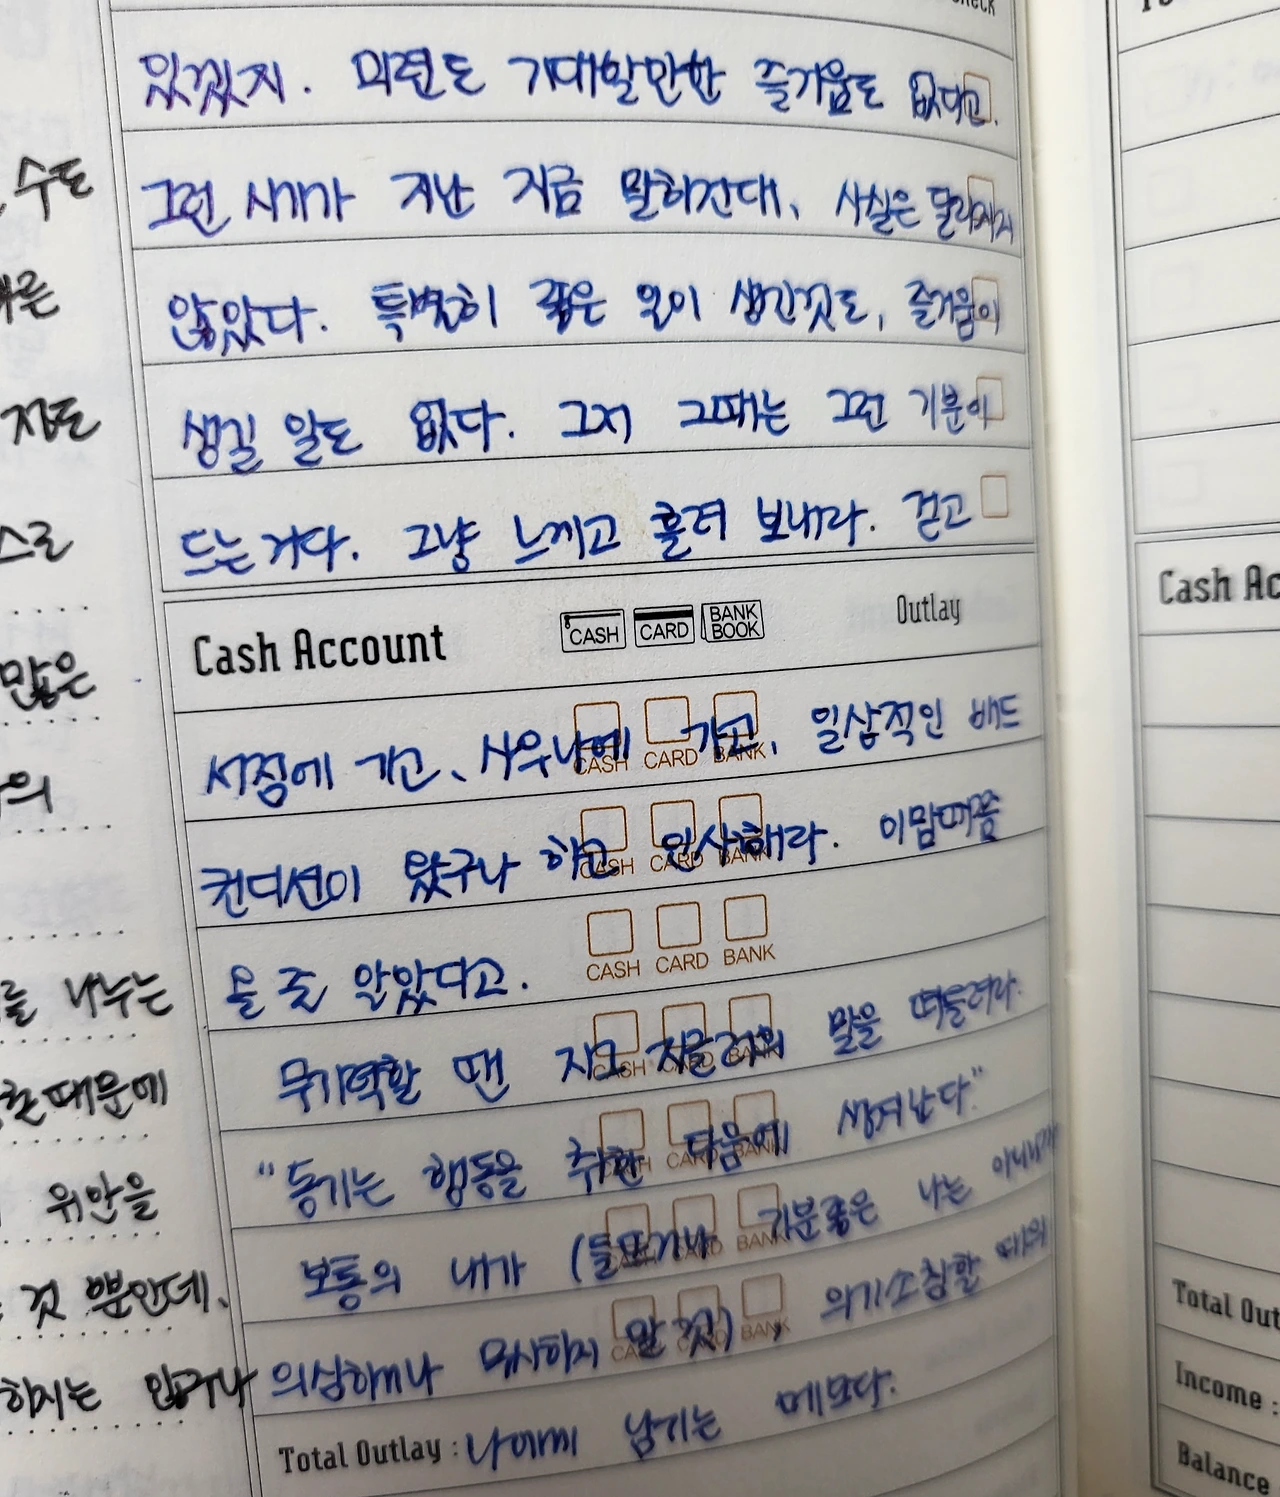 check
있겠지. 미련도 기대할만한 즐거움도 없다고.
그런 시기가 지난 지금 말하건대, 사실은 달라지지
않았다. 특별히 좋은 일이 생긴것도, 즐거움이
생길 일도 없다. 그저 그때는 그런 기분이
드는거다. 그냥 느끼고 흘려 보내라. 걷고
Cash Account CASH CARD BANK BOOK Outlay
서점에 가고, 사우나에 가고, 일상적인 배드
CASH CARD BANK
컨디션이 왔구나 하고 인사해라. 이맘때쯤
CASH CARD BANK
올 줄 알았다고.
CASH CARD BANK
무기력할 땐 지그 지글러의 말을 떠올려라.
CASH CARD BANK
"동기는 행동을 취한 다음에 생겨난다"
CASH CARD BANK
보통의 내가 (들뜨거나 기분좋은 나는 아니니까
CASH CARD BANK
의심하거나 무시하지 말 것), 의기소침할 때의
CASH CARD BANK
Total Outlay : 나에게 남기는 메모다.
수도
른
스로
많은
의
를 나누는
때문에
위안을
것 뿐인데.
하지는 않거나
Cash Ac
Total Out
Income :
Balance